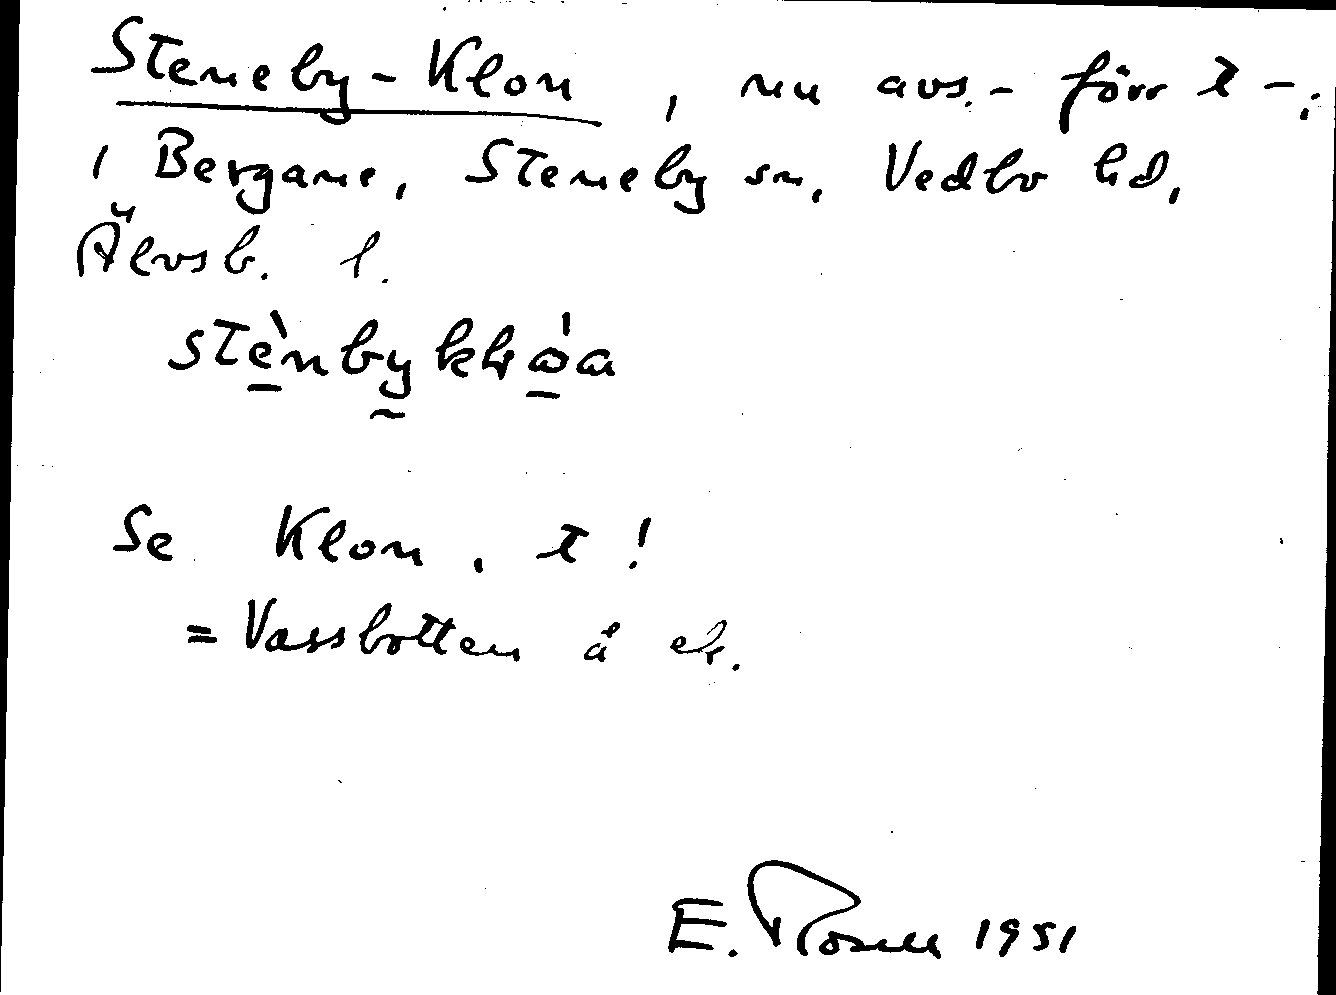 Steneby-Klon, nu avs.- förr t -.
i Bergane, Steneby sn, Vedbo hd,
Älvsb. l.
Se Klon, t!
= Vassbotten å ek.
E. Rosell 1951